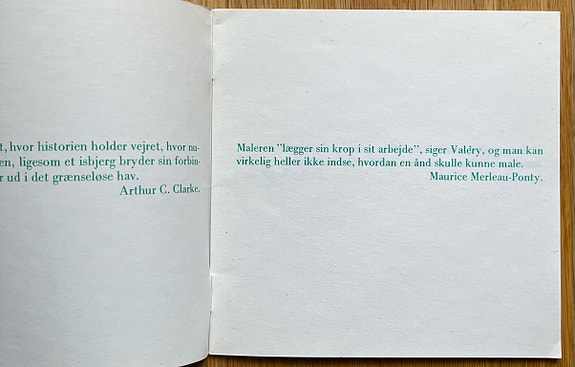 t, hvor historien holder vejret, hvor nu-
en, ligesom et isbjerg bryder sin forbin-
r ud i det grænseløse hav.
Arthur C. Clarke.
Maleren "lægger sin krop i sit arbejde", siger Valéry, og man kan
virkelig heller ikke indse, hvordan en ånd skulle kunne male.
Maurice Merleau-Ponty.